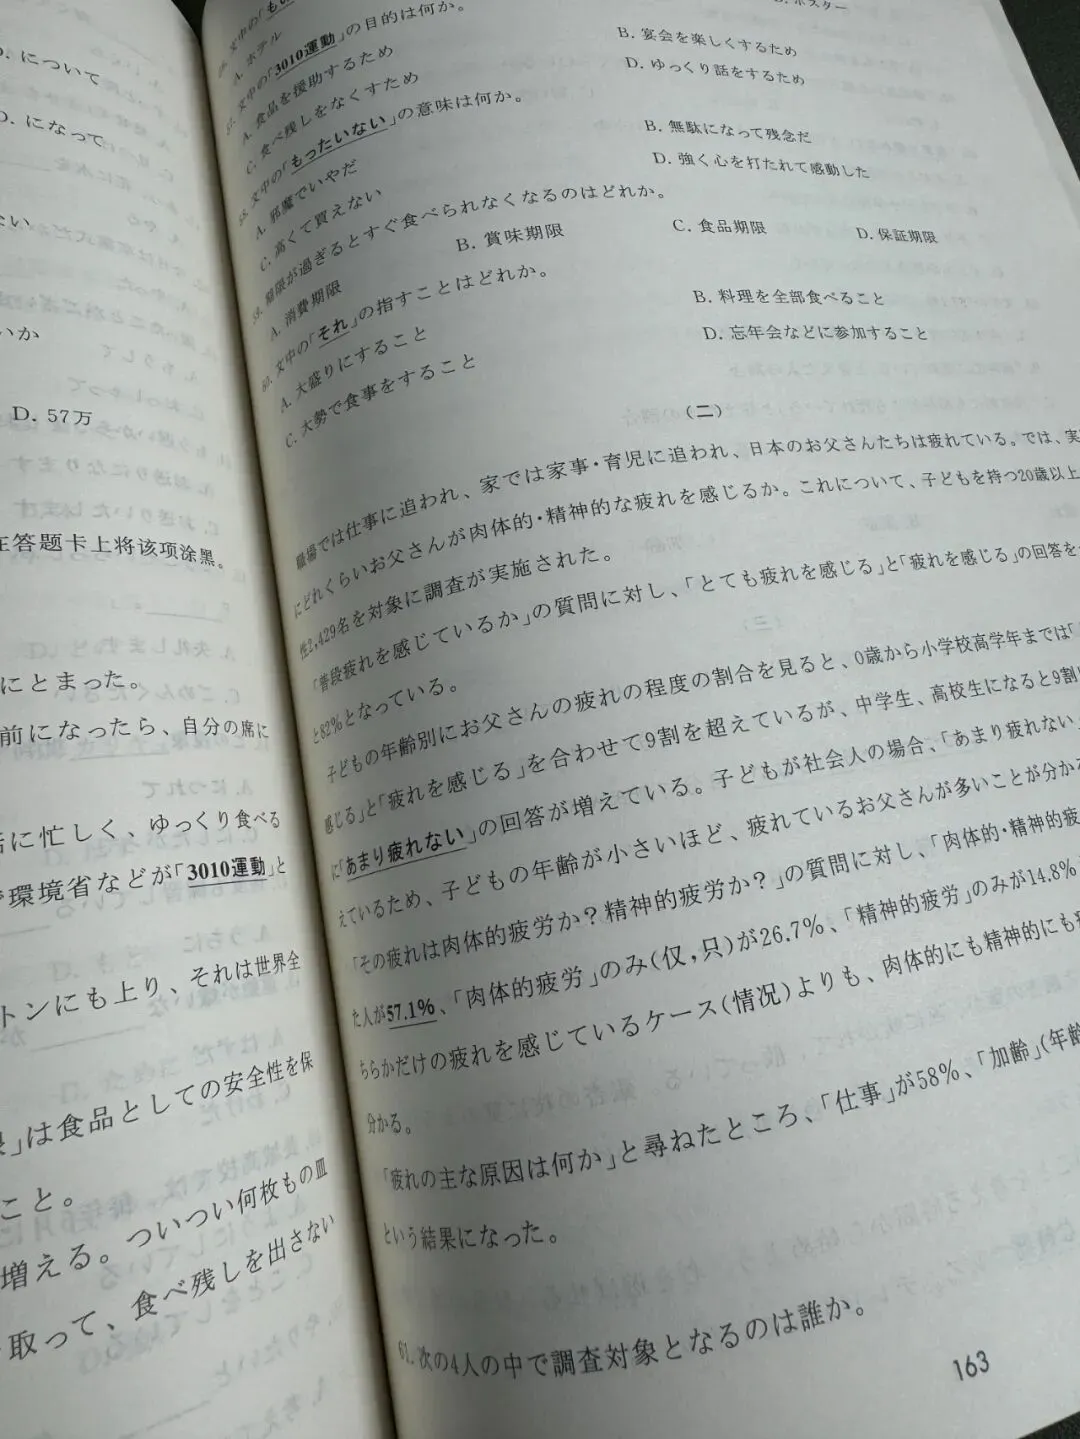 について
D. になって
ない
いか
D. 57万
在答题卡上将该项涂黑。
にとまった。
前になったら、自分の席に
に忙しく、ゆっくり食べる
環境省などが「3010運動」と
トンにも上り、それは世界全
」は食品としての安全性を保
こと。
増える。ついつい何枚もの皿
取って、食べ残しを出さない
文中の「もっ
D. ポスター
A. ホテル
57. 文中の「3010運動」の目的は何か。
A. 食品を援助するため
B. 宴会を楽しくするため
C. 食べ残しをなくすため
D. ゆっくり話をするため
58. 文中の「もったいない」の意味は何か。
A. 邪魔でいやだ
B. 無駄になって残念だ
C. 高くて買えない
D. 強く心を打たれて感動した
59. 期限が過ぎるとすぐ食べられなくなるのはどれか。
A. 消費期限
B. 賞味期限
C. 食品期限
D. 保証期限
60. 文中の「それ」の指すことはどれか。
A. 大盛りにすること
B. 料理を全部食べること
C. 大勢で食事をすること
D. 忘年会などに参加すること
(二)
職場では仕事に追われ、家では家事・育児に追われ、日本のお父さんたちは疲れている。では、実
にどれくらいお父さんが肉体的・精神的な疲れを感じるか。これについて、子どもを持つ20歳以上
性2,429名を対象に調査が実施された。
「普段疲れを感じているか」の質問に対し、「とても疲れを感じる」と「疲れを感じる」の回答を
と82%となっている。
子どもの年齢別にお父さんの疲れの程度の割合を見ると、0歳から小学校高学年までは「
感じる」と「疲れを感じる」を合わせて9割を超えているが、中学生、高校生になると9割
に「あまり疲れない」の回答が増えている。子どもが社会人の場合、「あまり疲れない」
えているため、子どもの年齢が小さいほど、疲れているお父さんが多いことが分か
「その疲れは肉体的疲労か？精神的疲労か？」の質問に対し、「肉体的・精神的疲
た人が57.1%、「肉体的疲労」のみ(仅,只)が26.7%、「精神的疲労」のみが14.8%
ちらかだけの疲れを感じているケース(情况)よりも、肉体的にも精神的にも
分かる。
「疲れの主な原因は何か」と尋ねたところ、「仕事」が58%、「加齢」(年齢
という結果になった。
61. 次の4人の中で調査対象となるのは誰か。
163